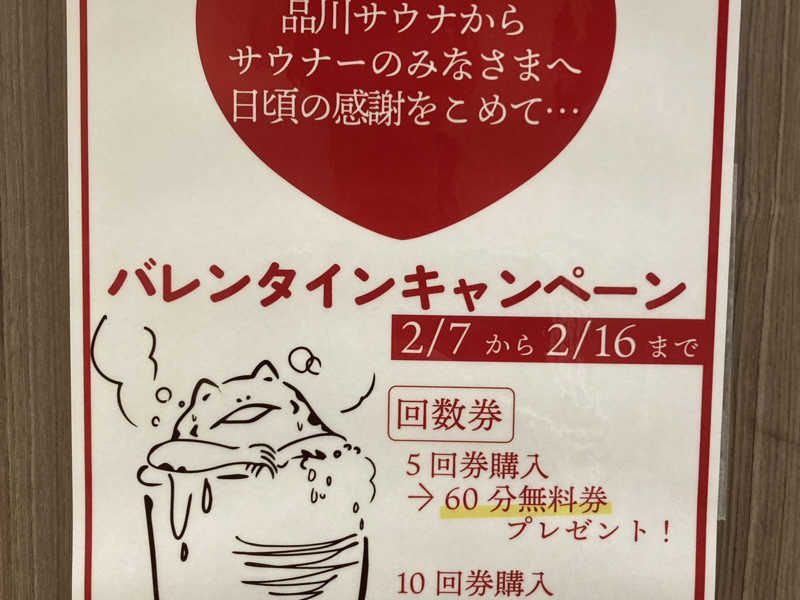 品川サウナから
サウナーのみなさまへ
日頃の感謝をこめて…
バレンタインキャンペーン
2/7 から 2/16 まで
回数券
5 回券購入
→ 60 分無料券
プレゼント！
10 回券購入